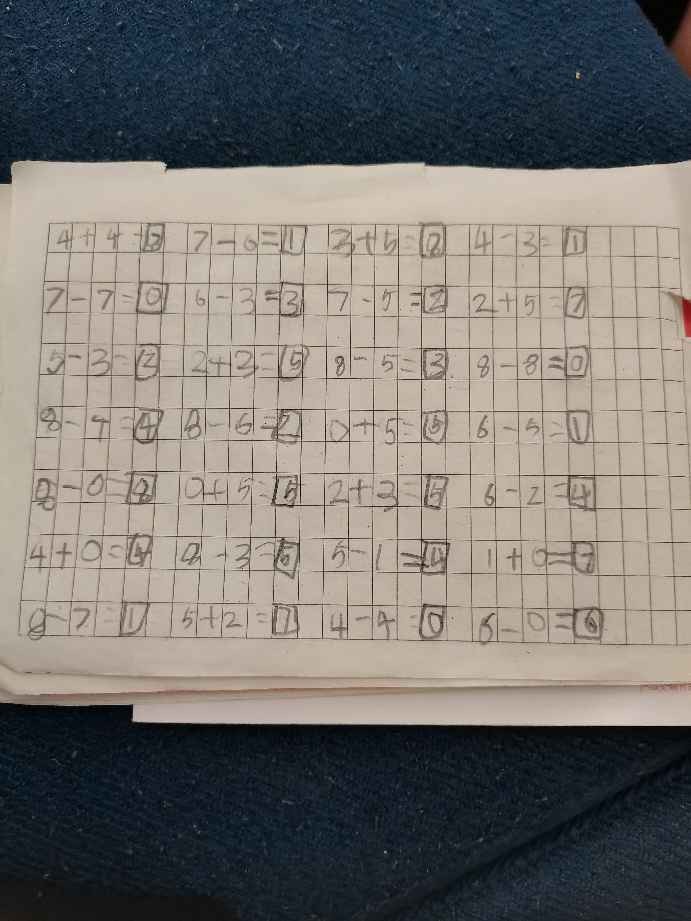 4+4=8 7-6=1 3+5=8 4-3=1
7-7=0 6-3=3 7-5=2 2+5=7
5-3=2 2+3=5 8-5=3 8-8=0
8-4=4 8-6=2 0+5=5 6-5=1
8-0=8 0+5=5 2+3=5 6-2=4
4+0=4 8-3=5 5-1=4 1+0=
8-7=1 5+2=7 4-4=0 6-0=6